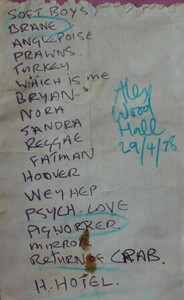 SOFT BOYS
BRANE
ANGLEPOISE
PRAWNS.
TURKEY
WHICH IS ME
BRYAN
NORA
SANDRA
REGGAE
FATMAN
HOOVER
WEY HEP
PSYCH. LOVE
PIGWORKER.
MIRROR
RETURN OF CRAB.
H. HOTEL.
Alex
Wood
Hall
29/4/78